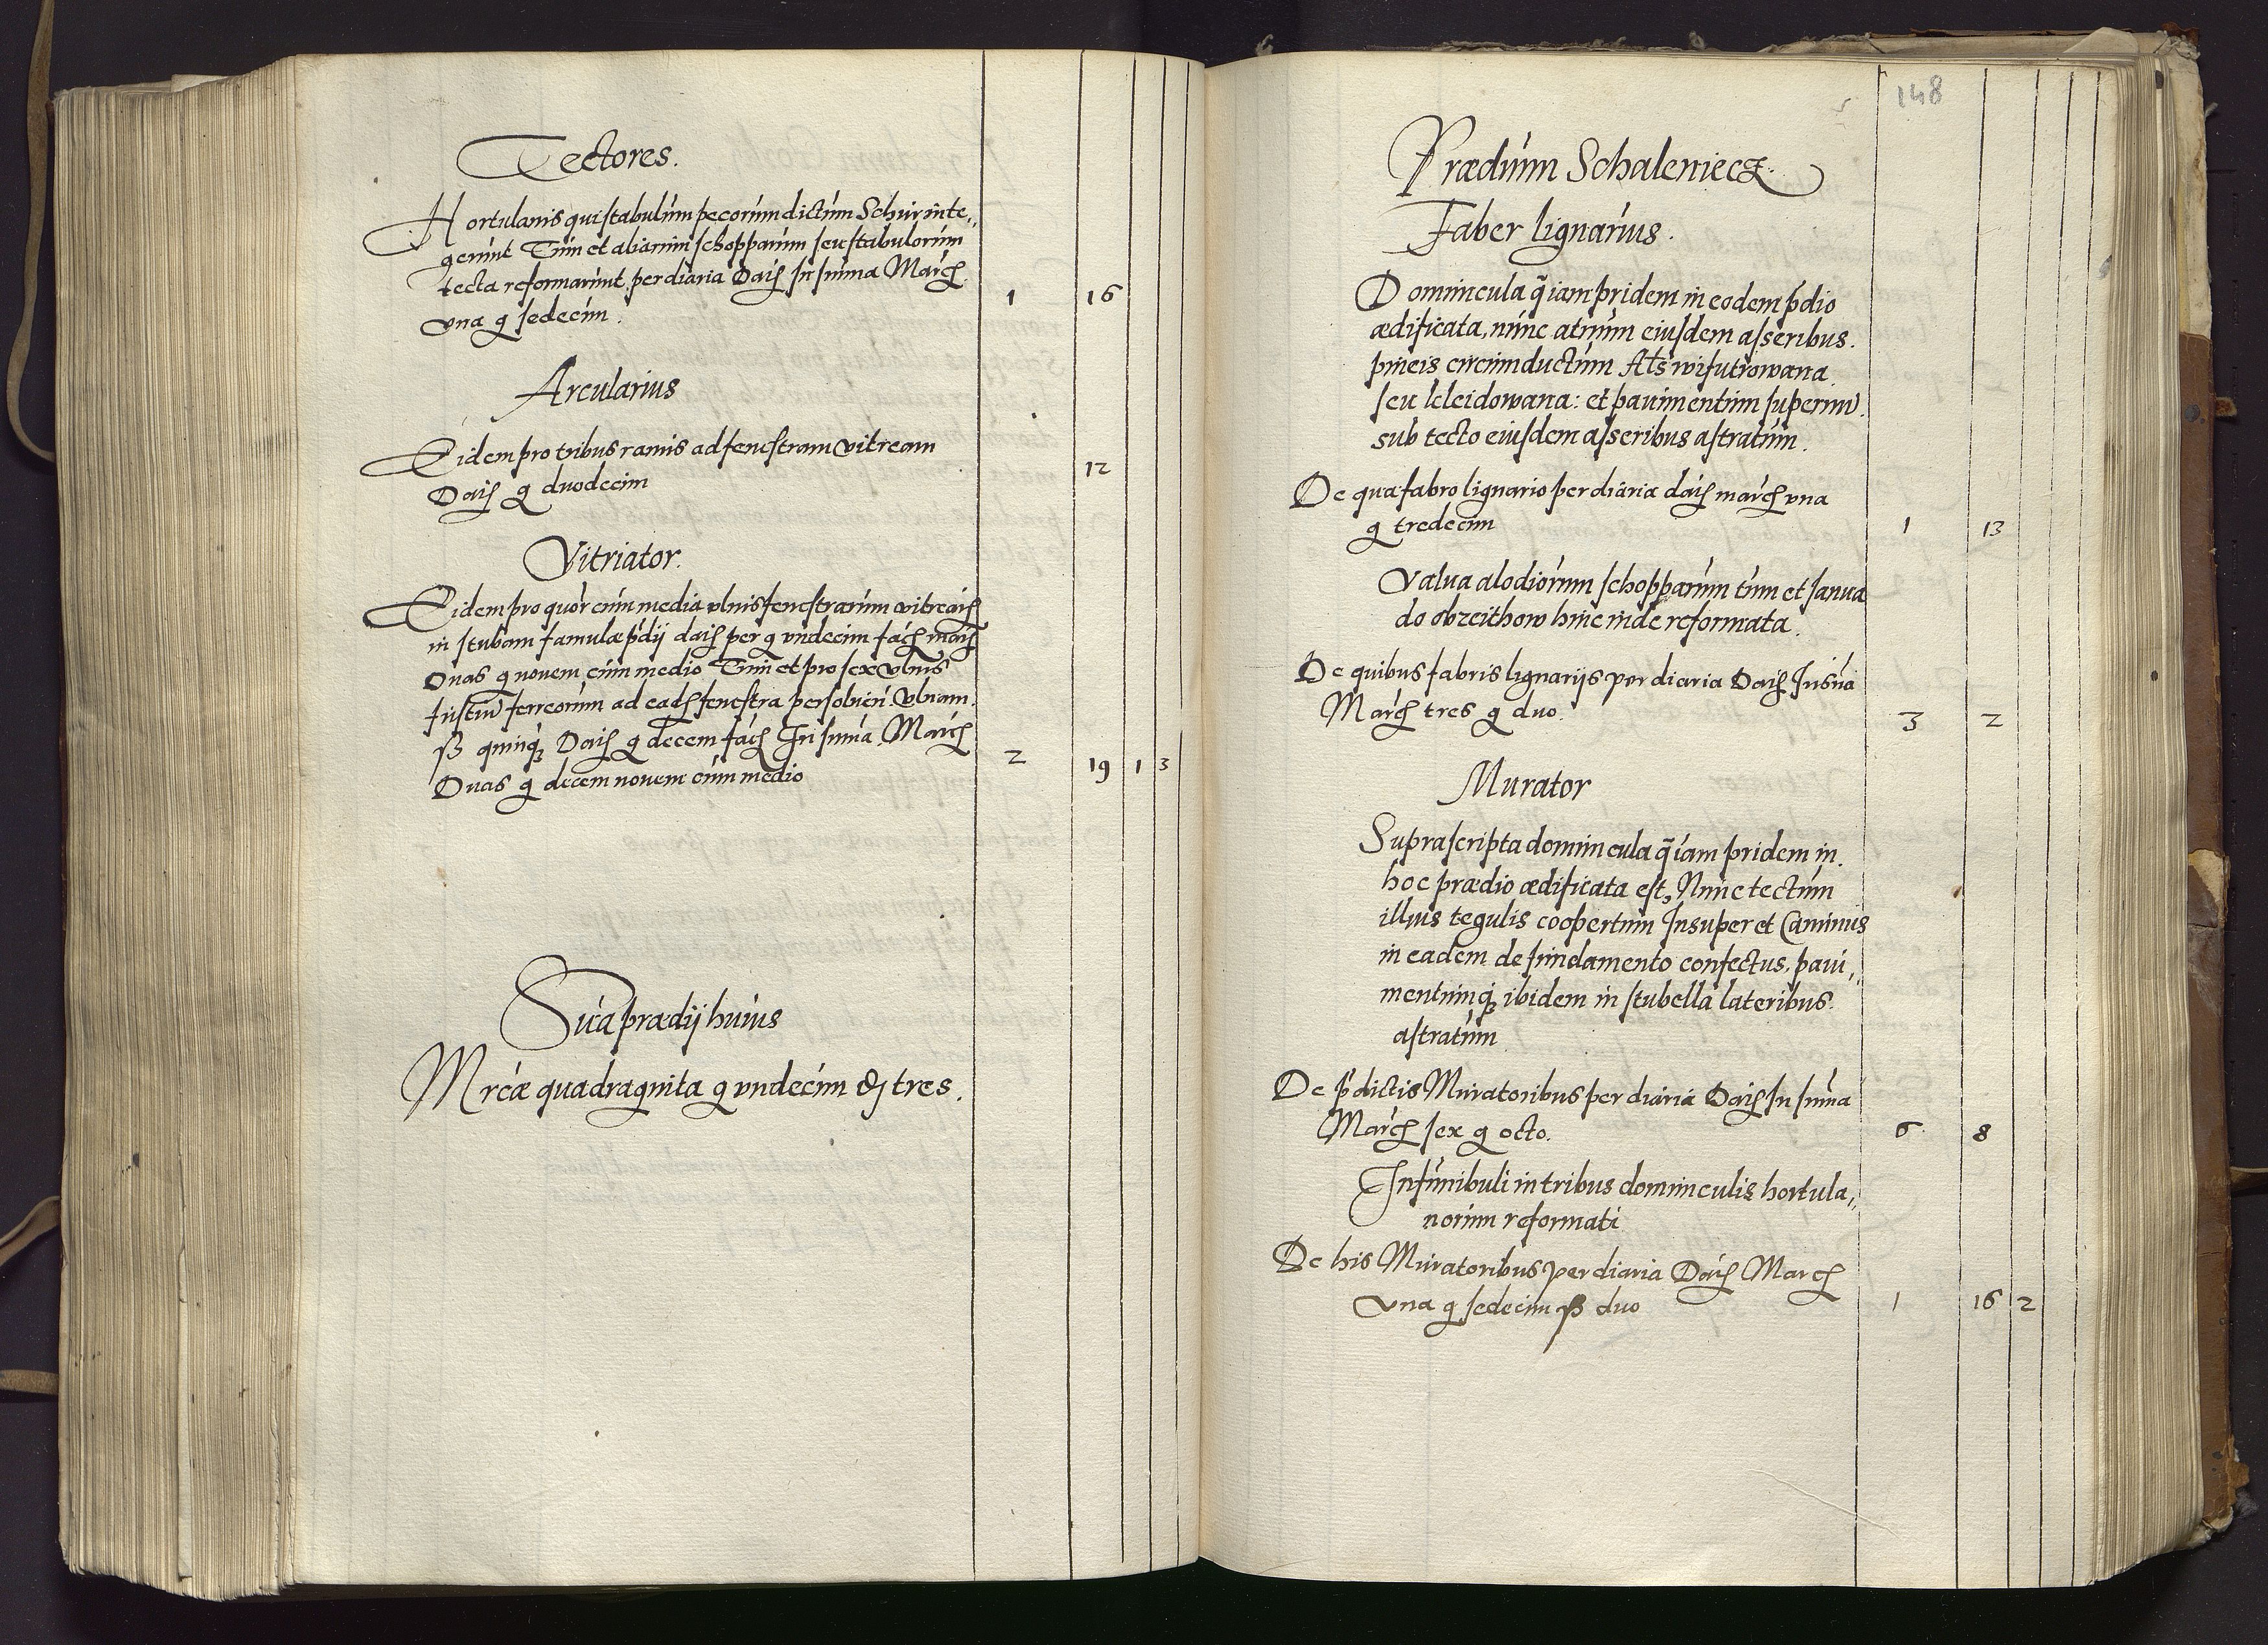 Tectores.
Hortulanis qui stabulum pecorum dictum Schur inte,,
gerunt Tum et aliarum schopparum seu stabulorum
tecta reformarunt per diaria Daĩs In summa March
1 16
una g sedecim.
Arcularius
Eidem pro tribus ramis ad fenestram vitream
12
Daĩs g duodecim
Vitriator.
Eidem pro quor cum media ulnis fenestrarum vitrearĩ
in stubam famulæ pdij daĩs per g undecim facĩ march
Duas g novem cum medio Tum et pro sex ulnis
ferreorum ad eadĩ fenestra persolven. Ulnam.
ß quinq3 Daĩs g decem facĩ In summa March
2 19 1 3
Duas g decem novem cum medio
Sūa prædij huius
Mrcæ quadraginta g undecim ₰ tres.
148
Prædium Schaleniecz.
Faber lignarius.
Domuncula q̃ iam pridem in eodem pdio
ædificata, nunc atrium eiusdem asseribus.
pineis circumductum Alts wifutrowana
seu kleidowana: et pavimentum superiu
sub tecto eiusdem asseribus astratum.
De qua fabro lignario per diaria daĩs march una
g tredecim
1 13
Valva alodiorum schopparum tum et Janua
do obrzeithow hinc inde reformata.
De quibus fabris lignarijs per diaria Daĩs In sūa
March tres g duo.
3 2
Murator
Suprascripta domuncula q̃ iam pridem in.
hoc prædio ædificata est, Nunc tectum
illius tegulis coopertum Insuper et Caminus
in eadem de fundamento confectus, pavi,,
mentumq3 ibidem in stubella lateribus.
astratum
De pdictis Muratoribus per diaria Daĩs In summa
March sex g octo.
6 8
Infunibuli in tribus domunculis hortula,,
norum reformati
De his Muratoribus per diaria Daĩs March
una g sedecim ß duo
1 16 2